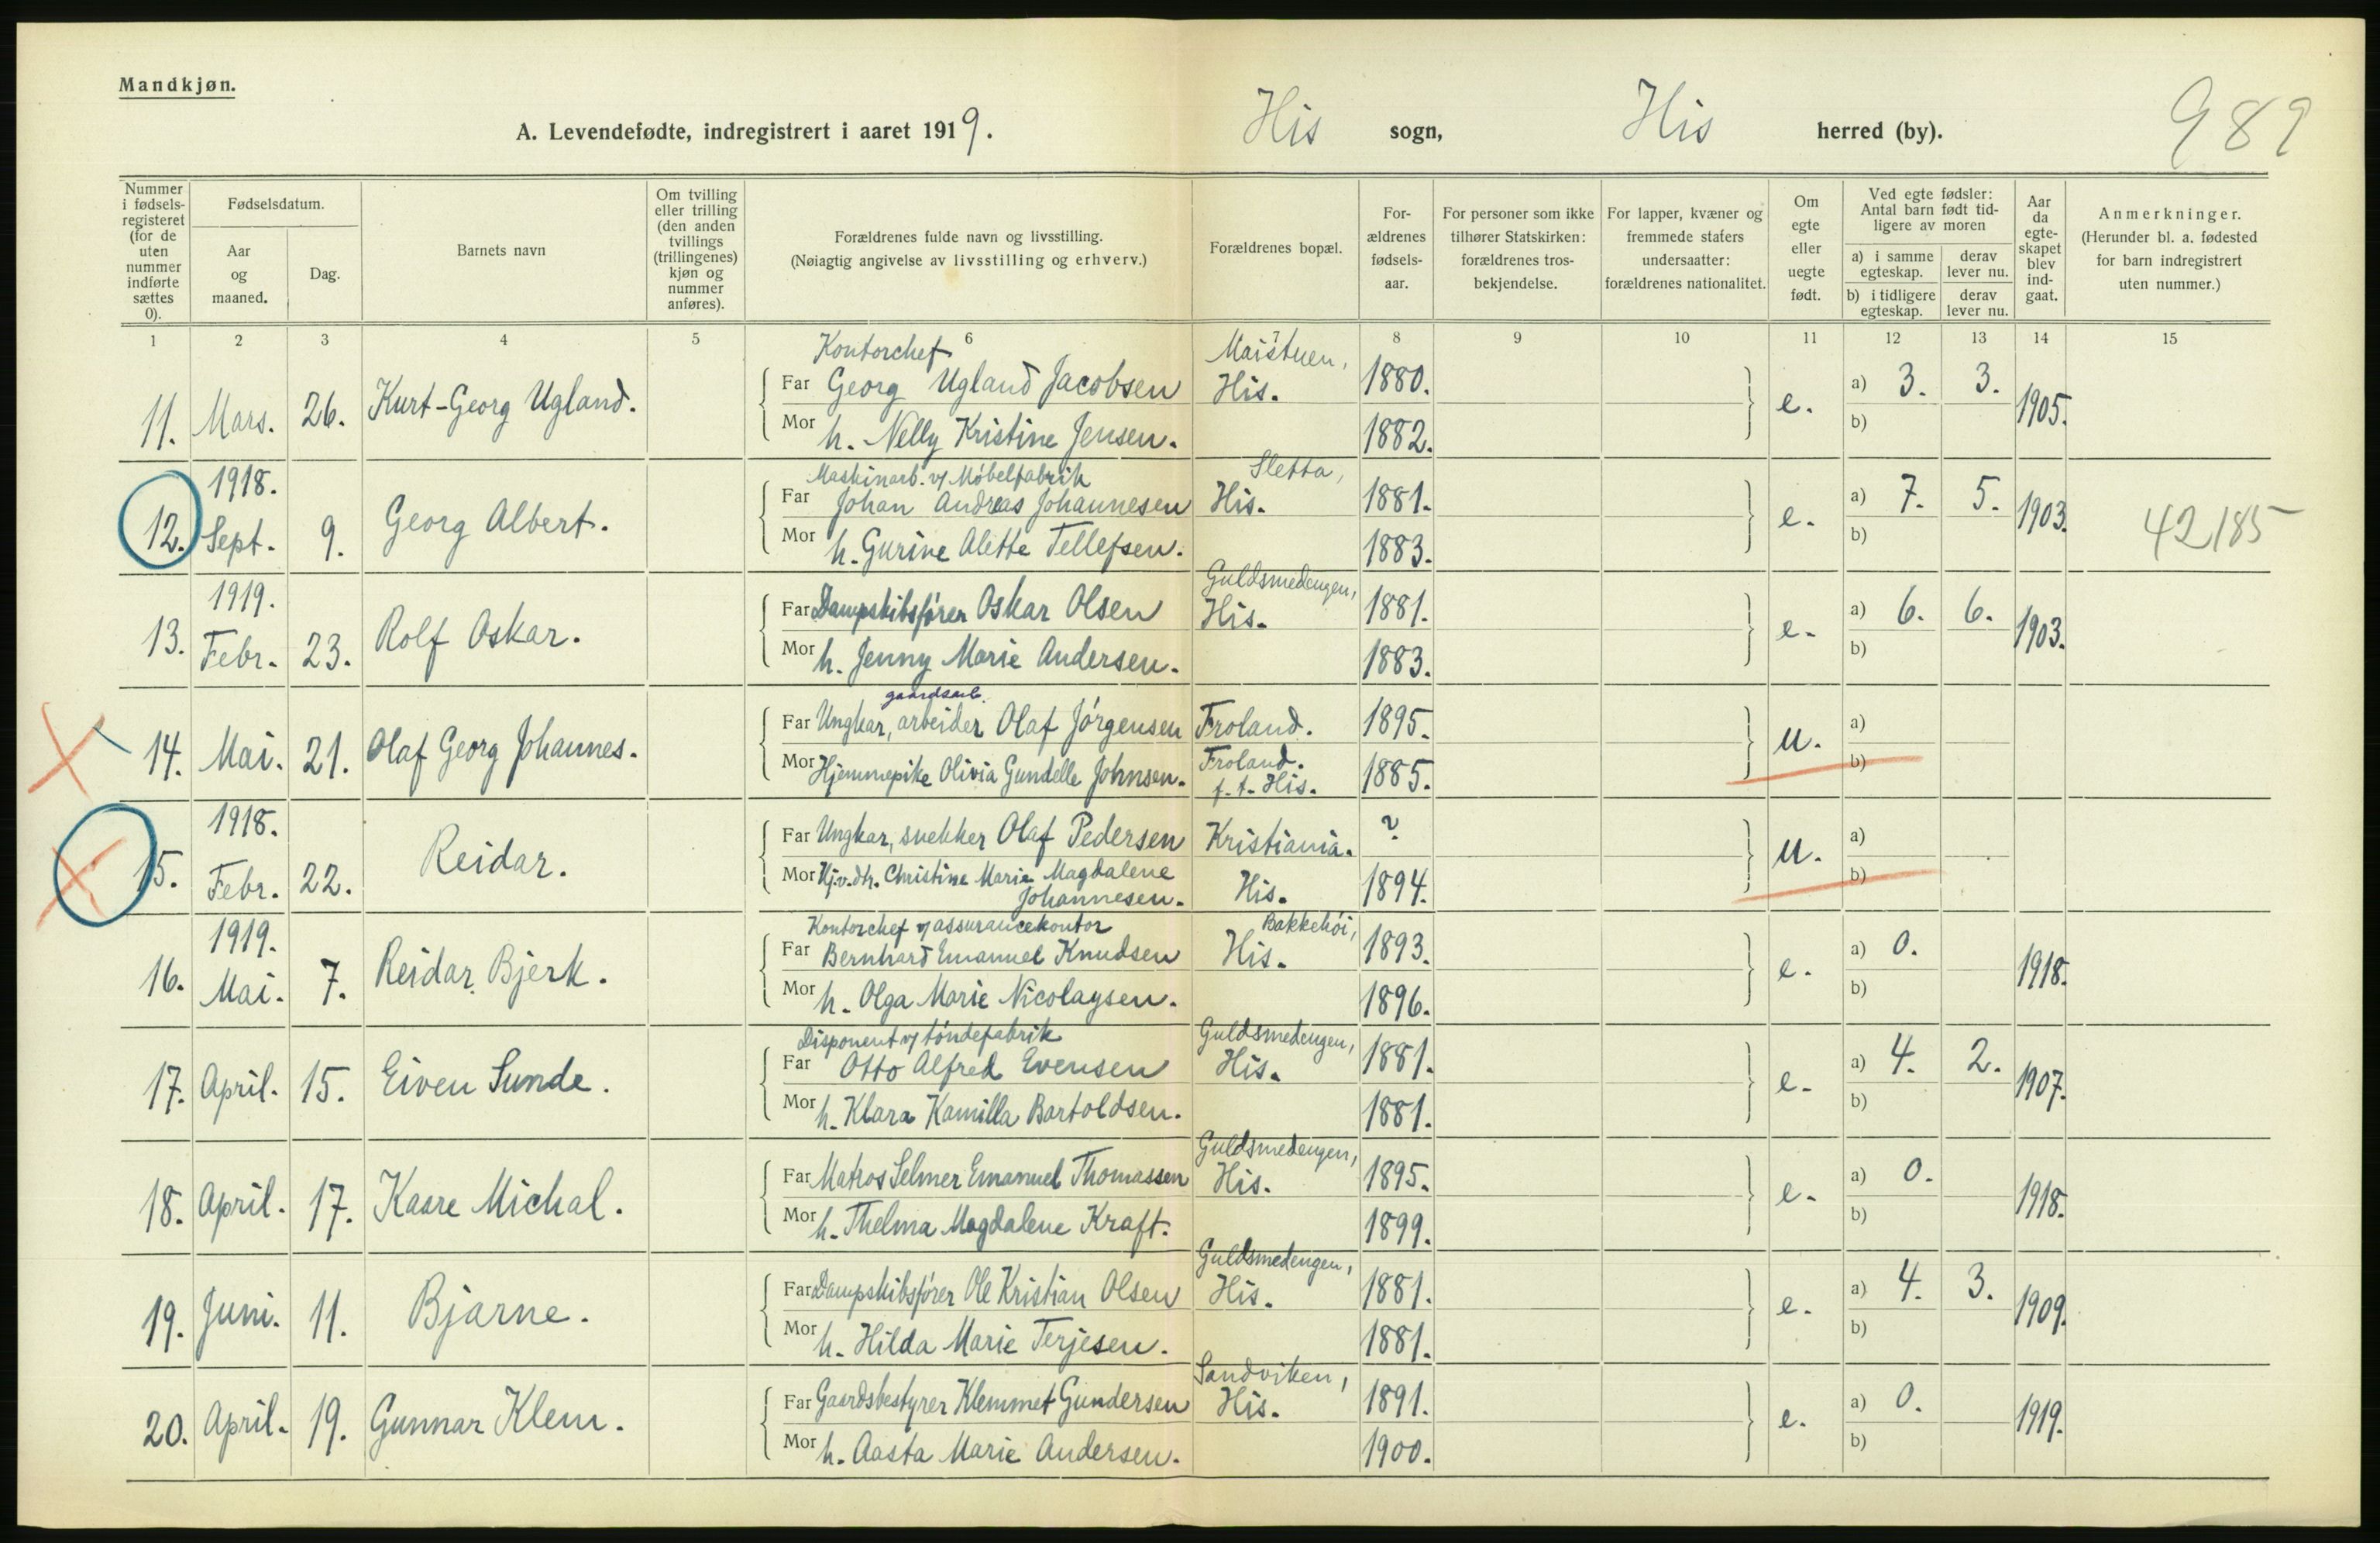 Mandkjøn.
A. Levendefødte, indregistrert i aaret 1919. His sogn, His herred (by). 989
Nummer i fødsels-registeret (for de uten nummer indførte sættes 0).
Fødselsdatum.
Aar og maaned.
Dag.
Barnets navn
Om tvilling eller trilling (den anden tvillings (trillingenes) kjøn og nummer anføres).
Forældrenes fulde navn og livsstilling.
(Nøiagtig angivelse av livsstilling og erhverv.)
Forældrenes bopæl.
For-ældrenes fødsels-aar.
For personer som ikke tilhører Statskirken: forældrenes tros-bekjendelse.
For lapper, kvæner og fremmede stafers undersaatter: forældrenes nationalitet.
Om egte eller uegte født.
Ved egte fødsler: Antal barn født tid-ligere av moren
a) i samme egteskap. derav lever nu.
b) i tidligere egteskap. derav lever nu.
Aar da egte-skapet blev ind-gaat.
Anmerkninger.
(Herunder bl. a. fødested for barn indregistrert uten nummer.)
1 2 3 4 5 6 7 8 9 10 11 12 13 14 15
Kontorchef Maistuen,
11. Mars. 26. Kurt-Georg Ugland. Far Georg Ugland Jacobsen His. 1880. e. a) 3. 3. 1905.
Mor h. Nelly Kristine Jensen. 1882. b)
1918. Maskinarb. v/ Møbelfabrik Sletta,
12. Sept. 9. Georg Albert. Far Johan Andreas Johannesen His. 1881. e. a) 7. 5. 1903. 42185
Mor h. Gurine Alette Tellefsen. 1883. b)
1919. Guldsmedengen,
13. Febr. 23. Rolf Oskar. Far Dampskibsfører Oskar Olsen His. 1881. e. a) 6. 6. 1903.
Mor h. Jenny Marie Andersen. 1883. b)
gaardsarb.
14. Mai. 21. Olaf Georg Johannes. Far Ungkar, arbeider Olaf Jørgensen Froland. 1895. u. a)
Mor Hjemmepike Olivia Gundelle Johnsen. Froland. f. t. His. 1885. b)
1918.
15. Febr. 22. Reidar. Far Ungkar, snekker Olaf Pedersen Kristiania. ? u. a)
Mor Hj.v.dtr. Christine Marie Magdalene Johannesen. His. 1894. b)
1919. Kontorchef v/ assurancekontor Bakkehøi,
16. Mai. 7. Reidar Bjerk. Far Bernhard Emanuel Knudsen His. 1893. e. a) 0. 1918.
Mor h. Olga Marie Nicolaysen. 1896. b)
Disponent v/ tøndefabrik Guldsmedengen,
17. April. 15. Eiven Sunde. Far Otto Alfred Evensen His. 1881. e. a) 4. 2. 1907.
Mor h. Klara Kamilla Bartoldsen. 1881. b)
Guldsmedengen,
18. April. 17. Kaare Michal. Far Matros Selmer Emanuel Thomassen His. 1895. e. a) 0. 1918.
Mor h. Thelma Magdalene Kraft. 1899. b)
Guldsmedengen,
19. Juni. 11. Bjarne. Far Dampskibsfører Ole Kristian Olsen His. 1881. e. a) 4. 3. 1909.
Mor h. Hilda Marie Terjesen. 1881. b)
Sandviken,
20. April. 19. Gunnar Klem. Far Gaardsbestyrer Klemmet Gundersen His. 1891. e. a) 0. 1919.
Mor h. Aasta Marie Andersen. 1900. b)